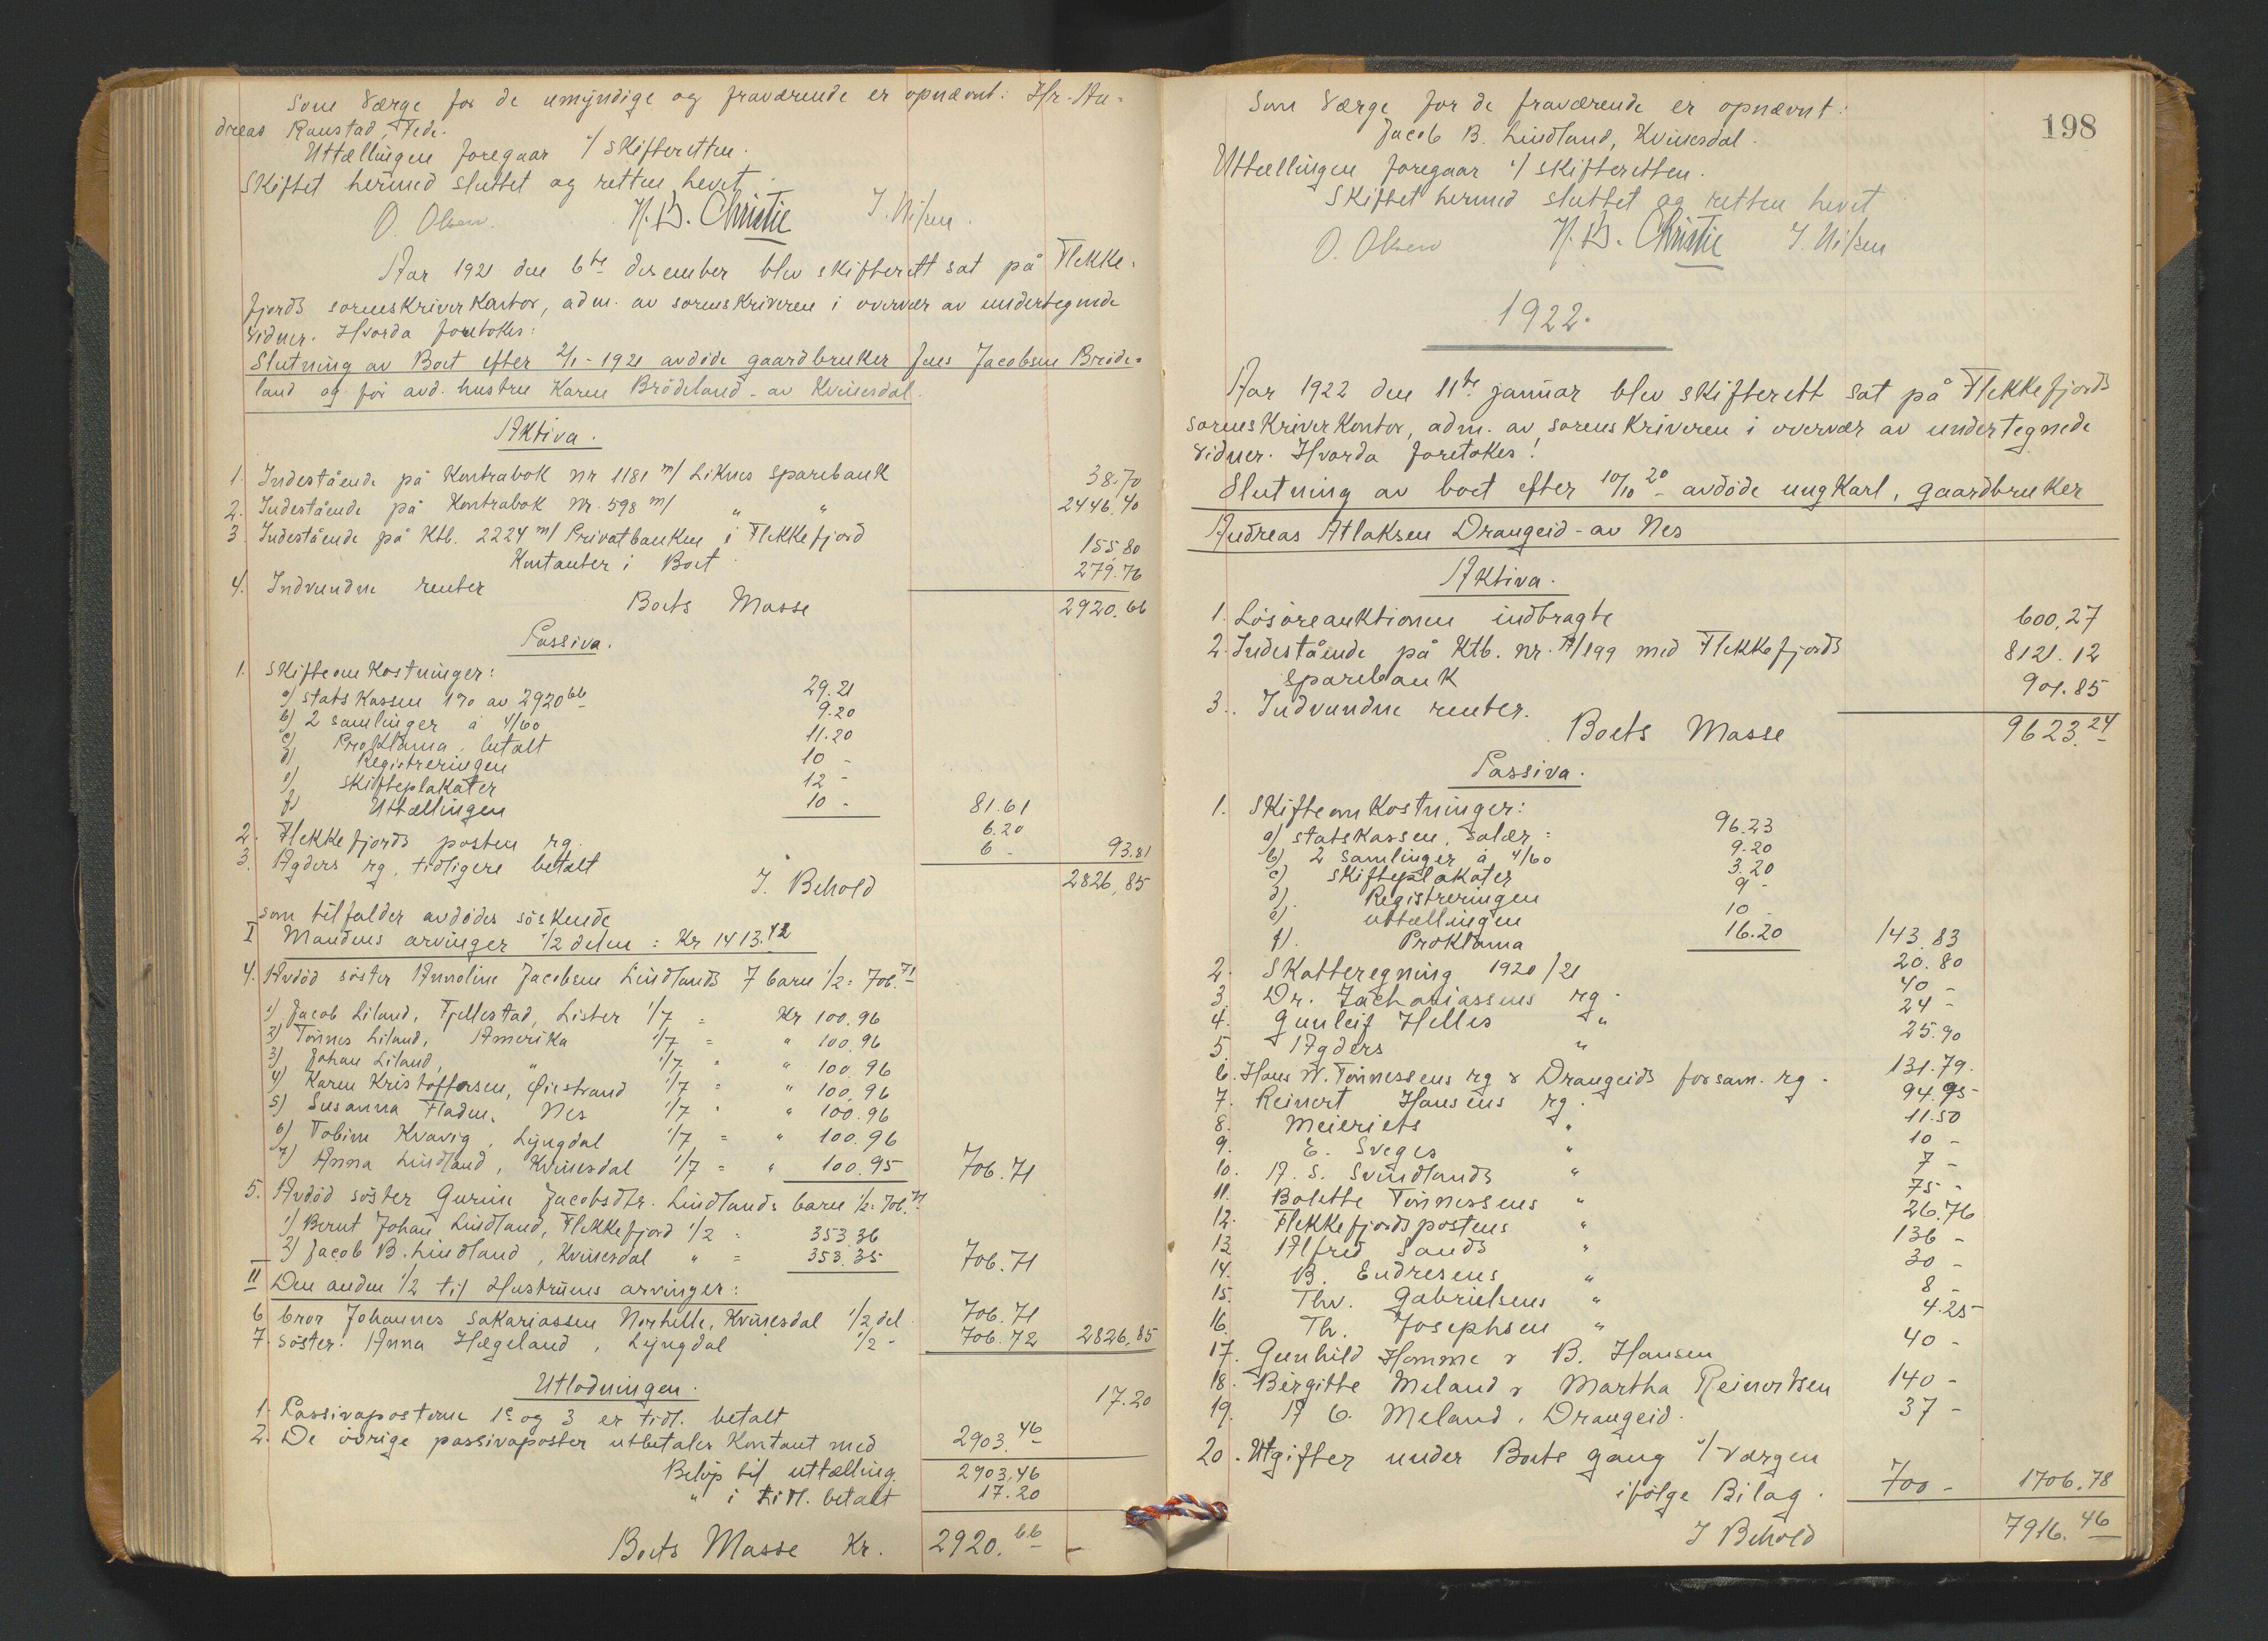 Som værge for de umyndige og fraværende er opnævnt: Hr. An-
dreas Raustad, Fede.
Uttællingen foregaar v/ skifteretten.
Skiftet hermed sluttet og retten hevet.
O. Olsen. N. B. Christie J. Nilsen.
Aar 1921 den 6te desember blev skifterett sat på Flekke-
fjords sorenskriverkontor, adm. av sorenskriveren i overvær av undertegnede
vidner. Hvorda foretokes:
Slutning av Boet efter 2/1-1921 avdöde gaardbruker Jens Jacobsen Bröde-
land og før avd. hustru Karen Brödeland - av Kvinesdal.
Aktiva.
1. Indestående på Kontrabok nr 1181 m/ Liknes sparebank 38.70
2. Indestående på Kontrabok nr. 598 m/ " " 2446.40
3. Indestående på Ktb. 2224 m/ Privatbanken i Flekkefjord 155.80
Kontanter i Boet
4. Indvundne renter 279.76
Boets Masse 2920.66
Passiva.
1. Skifteomkostninger:
a) statskassen 1% av 2920 66 29.21
b) 2 samlinger à 4/60 9.20
c) Proklama, betalt 11.20
d) Registreringen 10 -
e) skifteplakater 12 -
f) Uttællingen 10 - 81.61
2. Flekkefjords posten rg. 6.20
3. Agders rg. tidligere betalt 6 - 93.81
I. Behold 2826,85
som tilfalder avdödes söskende
I Mandens arvinger 1/2 delen: Kr 1413.42
4. Avdöd söster Annoline Jacobsen Lindlands 7 barn 1/2 = 706.71
1) Jacob Liland, Fjellestad, Lister 1/7 = Kr 100.96
2) Tönnes Liland, Amerika 1/7 = " 100.96
3) Johan Liland, " 1/7 " " 100.96
4) Karen Kristoffersen, Øiestrand 1/7 = " 100.96
5) Susanna Fladen, Nes 1/7 " " 100.96
6) Tobine Kvavig, Lyngdal 1/7 = " 100.96
7) Anna Lindland, Kvinesdal 1/7 = " 100.95 706.71
5. Avdöd söster Gurine Jacobsdtr. Lindlands barn 1/2 = 706.71
1) Bernt Johan Lindland, Flekkefjord 1/2 = 353.36
2) Jacob B. Lindland, Kvinesdal " = 353.35 706.71
II Den anden 1/2 til Hustruens arvinger:
6 bror Johannes Sakariassen Norhelle, Kvinesdal 1/2 del 706.71
7. söster: Anna Hægeland, Lyngdal 1/2 - 706.72 2826.85
Utlodningen.
1. Passivaposterne 1c og 3 er tidl. betalt 17.20
2. De övrige passivaposter utbetales Kontant med 2903.46
Belöp til uttælling. 2903.46
" i tidl. betalt 17.20
Boets Masse Kr. 2920.66 -
198
Som værge for de fraværende er opnævnt:
Jacob B. Lindland, Kvinesdal.
Uttællingen foregaar v/ skifteretten.
Skiftet hermed sluttet og retten hevet
O. Olsen N. B. Christie J. Nilsen
1922.
Aar 1922 den 11te januar blev skifterett sat på Flekkefjords
sorenskriverkontor, adm. av sorenskriveren i overvær av undertegnede
vidner. Hvorda foretokes!
Slutning av boet efter 10/10 20 - avdöde ungkarl, gaardbruker
Andreas Atlaksen Drangeid - av Nes
Aktiva.
1. Lösöreauktionen indbragte 600.27
2. Indestående på Ktb. nr. A/199 med Flekkefjords 8121.12
sparebank
3. Indvundne renter. 901.85
Boets Masse 9623.24
Passiva.
1. Skifteomkostninger:
a) statskassen, salær = 96.23
b) 2 samlinger à 4/60 9.20
c) skifteplakater 3.20
d). Registreringen 9 -
e) uttællingen 10
f). Proklama 16.20 143.83
2. Skatteregning 1920/21 20.80
3. Dr. Zachariassens rg. 40 -
4. Gunleif Helles " 24 -
5. Agders " 25.90
6. Hans N. Tönnessens rg & Drangeids forsam. rg. 131.79.
7. Reinert Hansens rg. 94.95
8. Meieriets " 11.50
9. E. Sveges " 10 -
10. A. S. Svindlands " 7 -
11. Bolette Tönnessens " 75 -
12. Flekkefjordspostens " 26.76
13. Alfred Sands " 136 -
14. B. Endresens " 30 -
15. Thv. Gabrielsens " 8 -
16. Th. Josephsen " 4.25
17. Gunhild Homme & B. Hansen 40 -
18. Birgitte Meland & Martha Reinertsen 140 -
19. A G. Meland, Drangeid. 37 -
20. Utgifter under Boets gang v/ værgen
ifölge Bilag. 700 - 1706.78
I Behold 7916.46